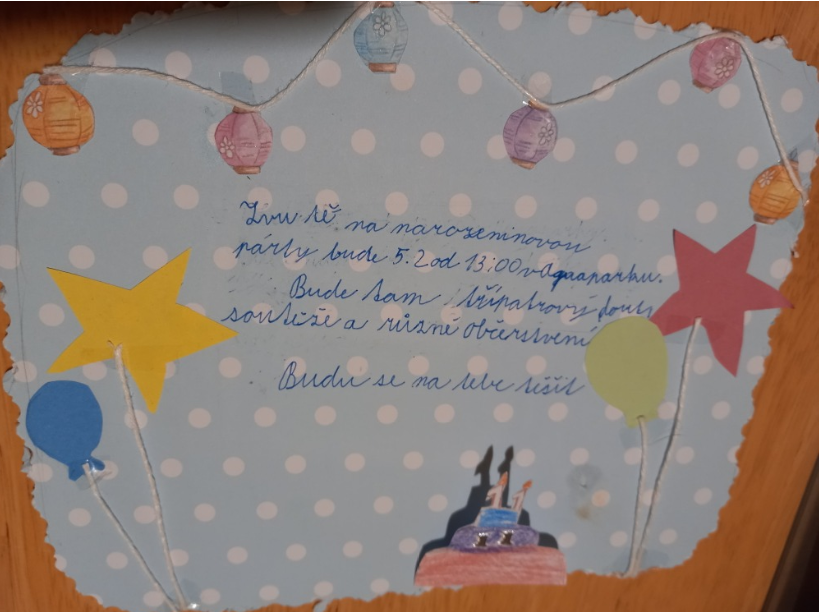 Zvu tě na narozeninovou
párty bude 5.2 od 13:00 v Aquaparku.
Bude tam třípatrový dort,
soutěže a různé občerstvení
Budu se na tebe těšit
11